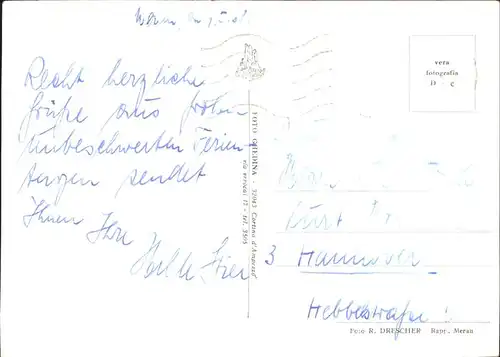 Recht herzliche
Grüße aus frohen
unbeschwerten Ferien-
tagen sendet
Ihnen Ihre
FOTO GHEDINA - 32043 Cortina d'Ampezzo
via verocai 12 - tel. 2505
vera
fotografia
D - c
Kurt
3 Hannover
Hebbelstraße
Foto R. DRESCHER Rapr. Meran